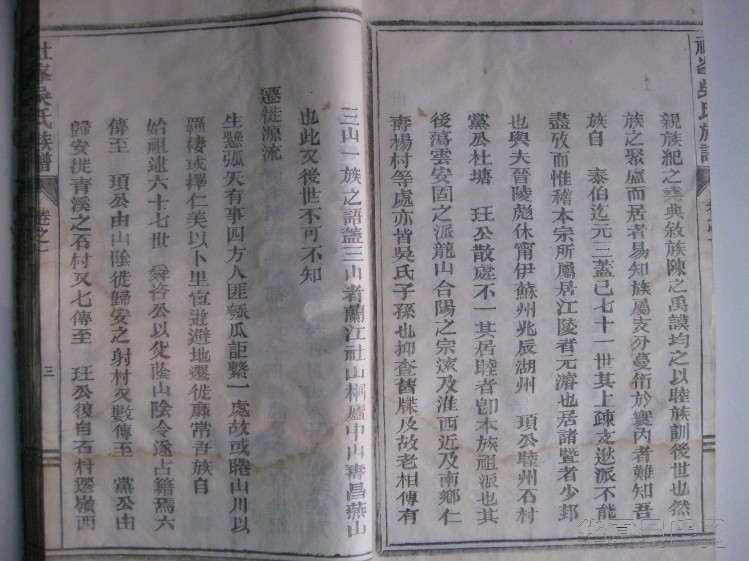 親族紀之堯典敘族陳之禹謨均之以睦族訓後世也然
族之聚廬而居者易知族屬支分蔓衍於寰內者難知吾
族自 泰伯迄元三蓋已七十一世其上疎支逖派不能
盡攷而惟稽本宗所屬居江陵者元濬也居諸暨者少邦
也與夫晉陵彪休甯伊蘇州兆辰湖州 項公睦州石村
黨公杜塘 玨公散處不一其居睦者卽本族祖派也其
後蕩雲安固之派龍山合陽之宗流及淮西近及南鄉仁
壽楊村等處亦皆吳氏子孫也抑查舊牒及故老相傳有
三山一族之語蓋三山者蘭江社山桐廬中山壽昌燕山
也此又後世不可不知
遷徙源流
生懸弧矢有事四方人匪瓠瓜詎繫一處故或睠山川以
羈棲或擇仁美以卜里宦遊避地遷徙靡常吾族自
始祖逮六十七世 舜咨公以父蔭山陰令遂占籍焉六
傳至 項公由山陰徙歸安之射村又數傳至 黨公由
歸安徙青溪之石村又七傳至 玨公復自石村遷嶺西
社峯吳氏族譜
卷之一
三
社峯吳氏族譜